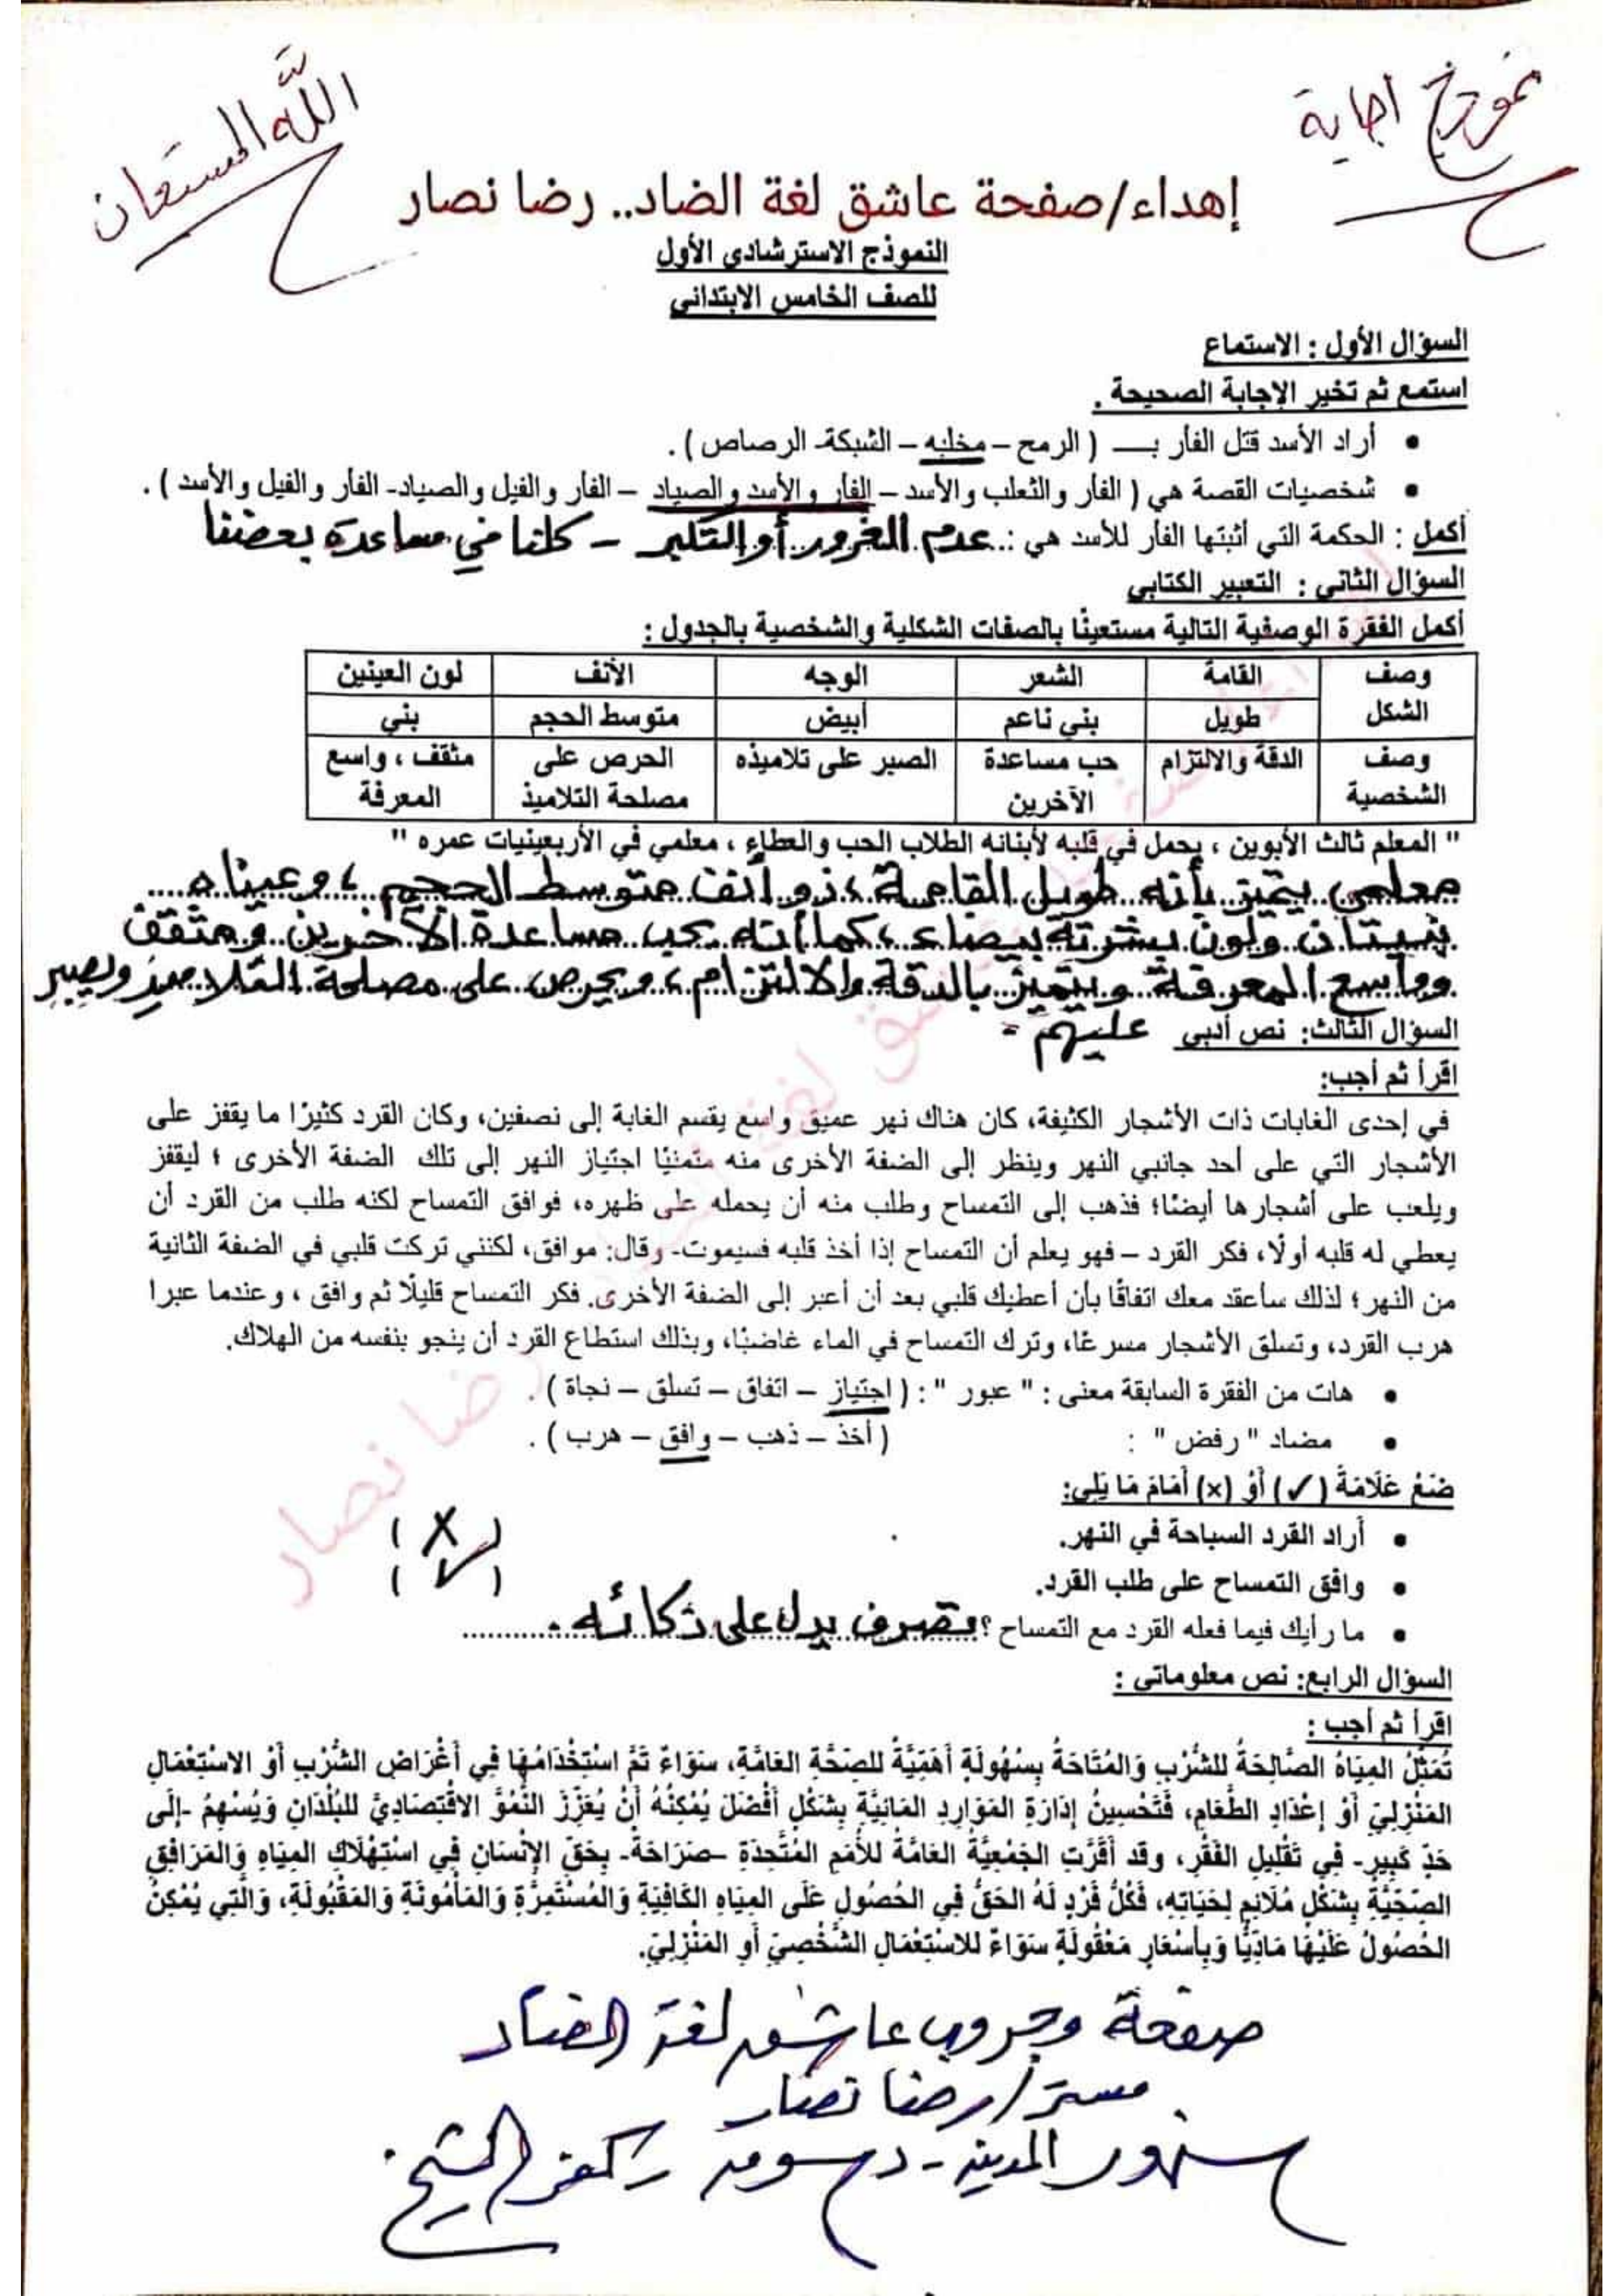 نموذج اجابة
الله المستعان
إهداء/صفحة عاشق لغة الضاد.. رضا نصار
النموذج الاسترشادى الأول
للصف الخامس الابتدائى
السؤال الأول : الاستماع
استمع ثم تخير الإجابة الصحيحة .
• أراد الأسد قتل الفأر بـــ ( الرمح – مخلبه – الشبكة- الرصاص ) .
• شخصيات القصة هي ( الفأر والثعلب والأسد – الفأر والأسد والصياد – الفأر والفيل والصياد- الفأر والفيل والأسد ) .
أكمل : الحكمة التي أثبتها الفأر للأسد هي :.. عدم الغرور أو التكبر - كلنا في مساعدة بعضنا
السؤال الثاني : التعبير الكتابي
أكمل الفقرة الوصفية التالية مستعينًا بالصفات الشكلية والشخصية بالجدول :
وصف الشكل القامة الشعر الوجه الأنف لون العينين
طويل بني ناعم أبيض متوسط الحجم بني
وصف الدقة والالتزام حب مساعدة الصبر على تلاميذه الحرص على مثقف ، واسع
الشخصية الآخرين مصلحة التلاميذ المعرفة
" المعلم ثالث الأبوين ، يحمل في قلبه لأبنائه الطلاب الحب والعطاء ، معلمي في الأربعينيات عمره "
معلمي يتميز بأنه طويل القامة ، ذو أنف متوسط الحجم ، وعيناه
بنيتان ولون بشرته بيضاء ، كما أنه يحب مساعدة الآخرين ومثقف
وواسع المعرفة ويتميز بالدقة والالتزام ، ويحرص على مصلحة التلاميذ ويصبر
عليهم -
السؤال الثالث: نص أدبى
اقرأ ثم أجب:
في إحدى الغابات ذات الأشجار الكثيفة، كان هناك نهر عميق واسع يقسم الغابة إلى نصفين، وكان القرد كثيرًا ما يقفز على
الأشجار التي على أحد جانبي النهر وينظر إلى الضفة الأخرى منه متمنيًا اجتياز النهر إلى تلك الضفة الأخرى ؛ ليقفز
ويلعب على أشجارها أيضًا؛ فذهب إلى التمساح وطلب منه أن يحمله على ظهره، فوافق التمساح لكنه طلب من القرد أن
يعطي له قلبه أولًا، فكر القرد – فهو يعلم أن التمساح إذا أخذ قلبه فسيموت- وقال: موافق، لكنني تركت قلبي في الضفة الثانية
من النهر؛ لذلك سأعقد معك اتفاقًا بأن أعطيك قلبي بعد أن أعبر إلى الضفة الأخرى. فكر التمساح قليلًا ثم وافق ، وعندما عبرا
هرب القرد، وتسلق الأشجار مسرعًا، وترك التمساح في الماء غاضبًا، وبذلك استطاع القرد أن ينجو بنفسه من الهلاك.
• هات من الفقرة السابقة معنى : " عبور " : ( اجتياز – اتفاق – تسلق – نجاة ) .
• مضاد " رفض " : ( أخذ – ذهب – وافق – هرب ) .
ضَعْ عَلَامَةَ (✓) أَوْ (×) أَمَامَ مَا يَلِي:
• أراد القرد السباحة في النهر. ( × )
• وافق التمساح على طلب القرد. ( ✓ )
• ما رأيك فيما فعله القرد مع التمساح ؟ تصرف يدل على ذكائه .
السؤال الرابع: نص معلوماتى :
اقرأ ثم أجب :
تُمَثِّلُ المِيَاهُ الصَّالِحَةُ للشُّرْبِ وَالمُتَاحَةُ بِسُهُولَةٍ أَهَمِيَّةً للصِحَّةِ العَامَّةِ، سَوَاءً تَمَّ اسْتِخْدَامُهَا فِي أَغْرَاضِ الشُّرْبِ أَوْ الاسْتِعْمَالِ
المَنْزِلِيّ أَوْ إِعْدَادِ الطَّعَامِ، فَتَحْسِينُ إِدَارَةِ المَوَارِدِ المَائِيَّةِ بِشَكْلٍ أَفْضَلَ يُمْكِنُهُ أَنْ يُعَزِّزَ النُّمُوَّ الاقْتِصَادِيَّ للبُلْدَانِ وَيُسْهِمُ -إِلَى
حَدٍّ كَبِيرٍ- فِي تَقْلِيلِ الفَقْرِ، وقد أَقَرَّتِ الجَمْعِيَّةُ العَامَّةُ للأُمَمِ المُتَّحِدَةِ –صَرَاحَةً- بِحَقِّ الإِنْسَانِ فِي اسْتِهْلَاكِ المِيَاهِ وَالمَرَافِقِ
الصِّحِّيَّةِ بِشَكْلٍ مُلَائِمٍ لِحَيَاتِهِ، فَكُلُّ فَرْدٍ لَهُ الحَقُّ فِي الحُصُولِ عَلَى المِيَاهِ الكَافِيَةِ وَالمُسْتَمِرَّةِ وَالمَأْمُونَةِ وَالمَقْبُولَةِ، وَالَّتِي يُمْكِنُ
الحُصُولُ عَلَيْهَا مَادِّيًّا وَبِأَسْعَارٍ مَعْقُولَةٍ سَوَاءً للاسْتِعْمَالِ الشَّخْصِيّ أَوِ المَنْزِلِيّ.
صفحة وجروب عاشق لغة الضاد
مستر/رضا نصار
سنهور المدينة - دسوق - كفر الشيخ